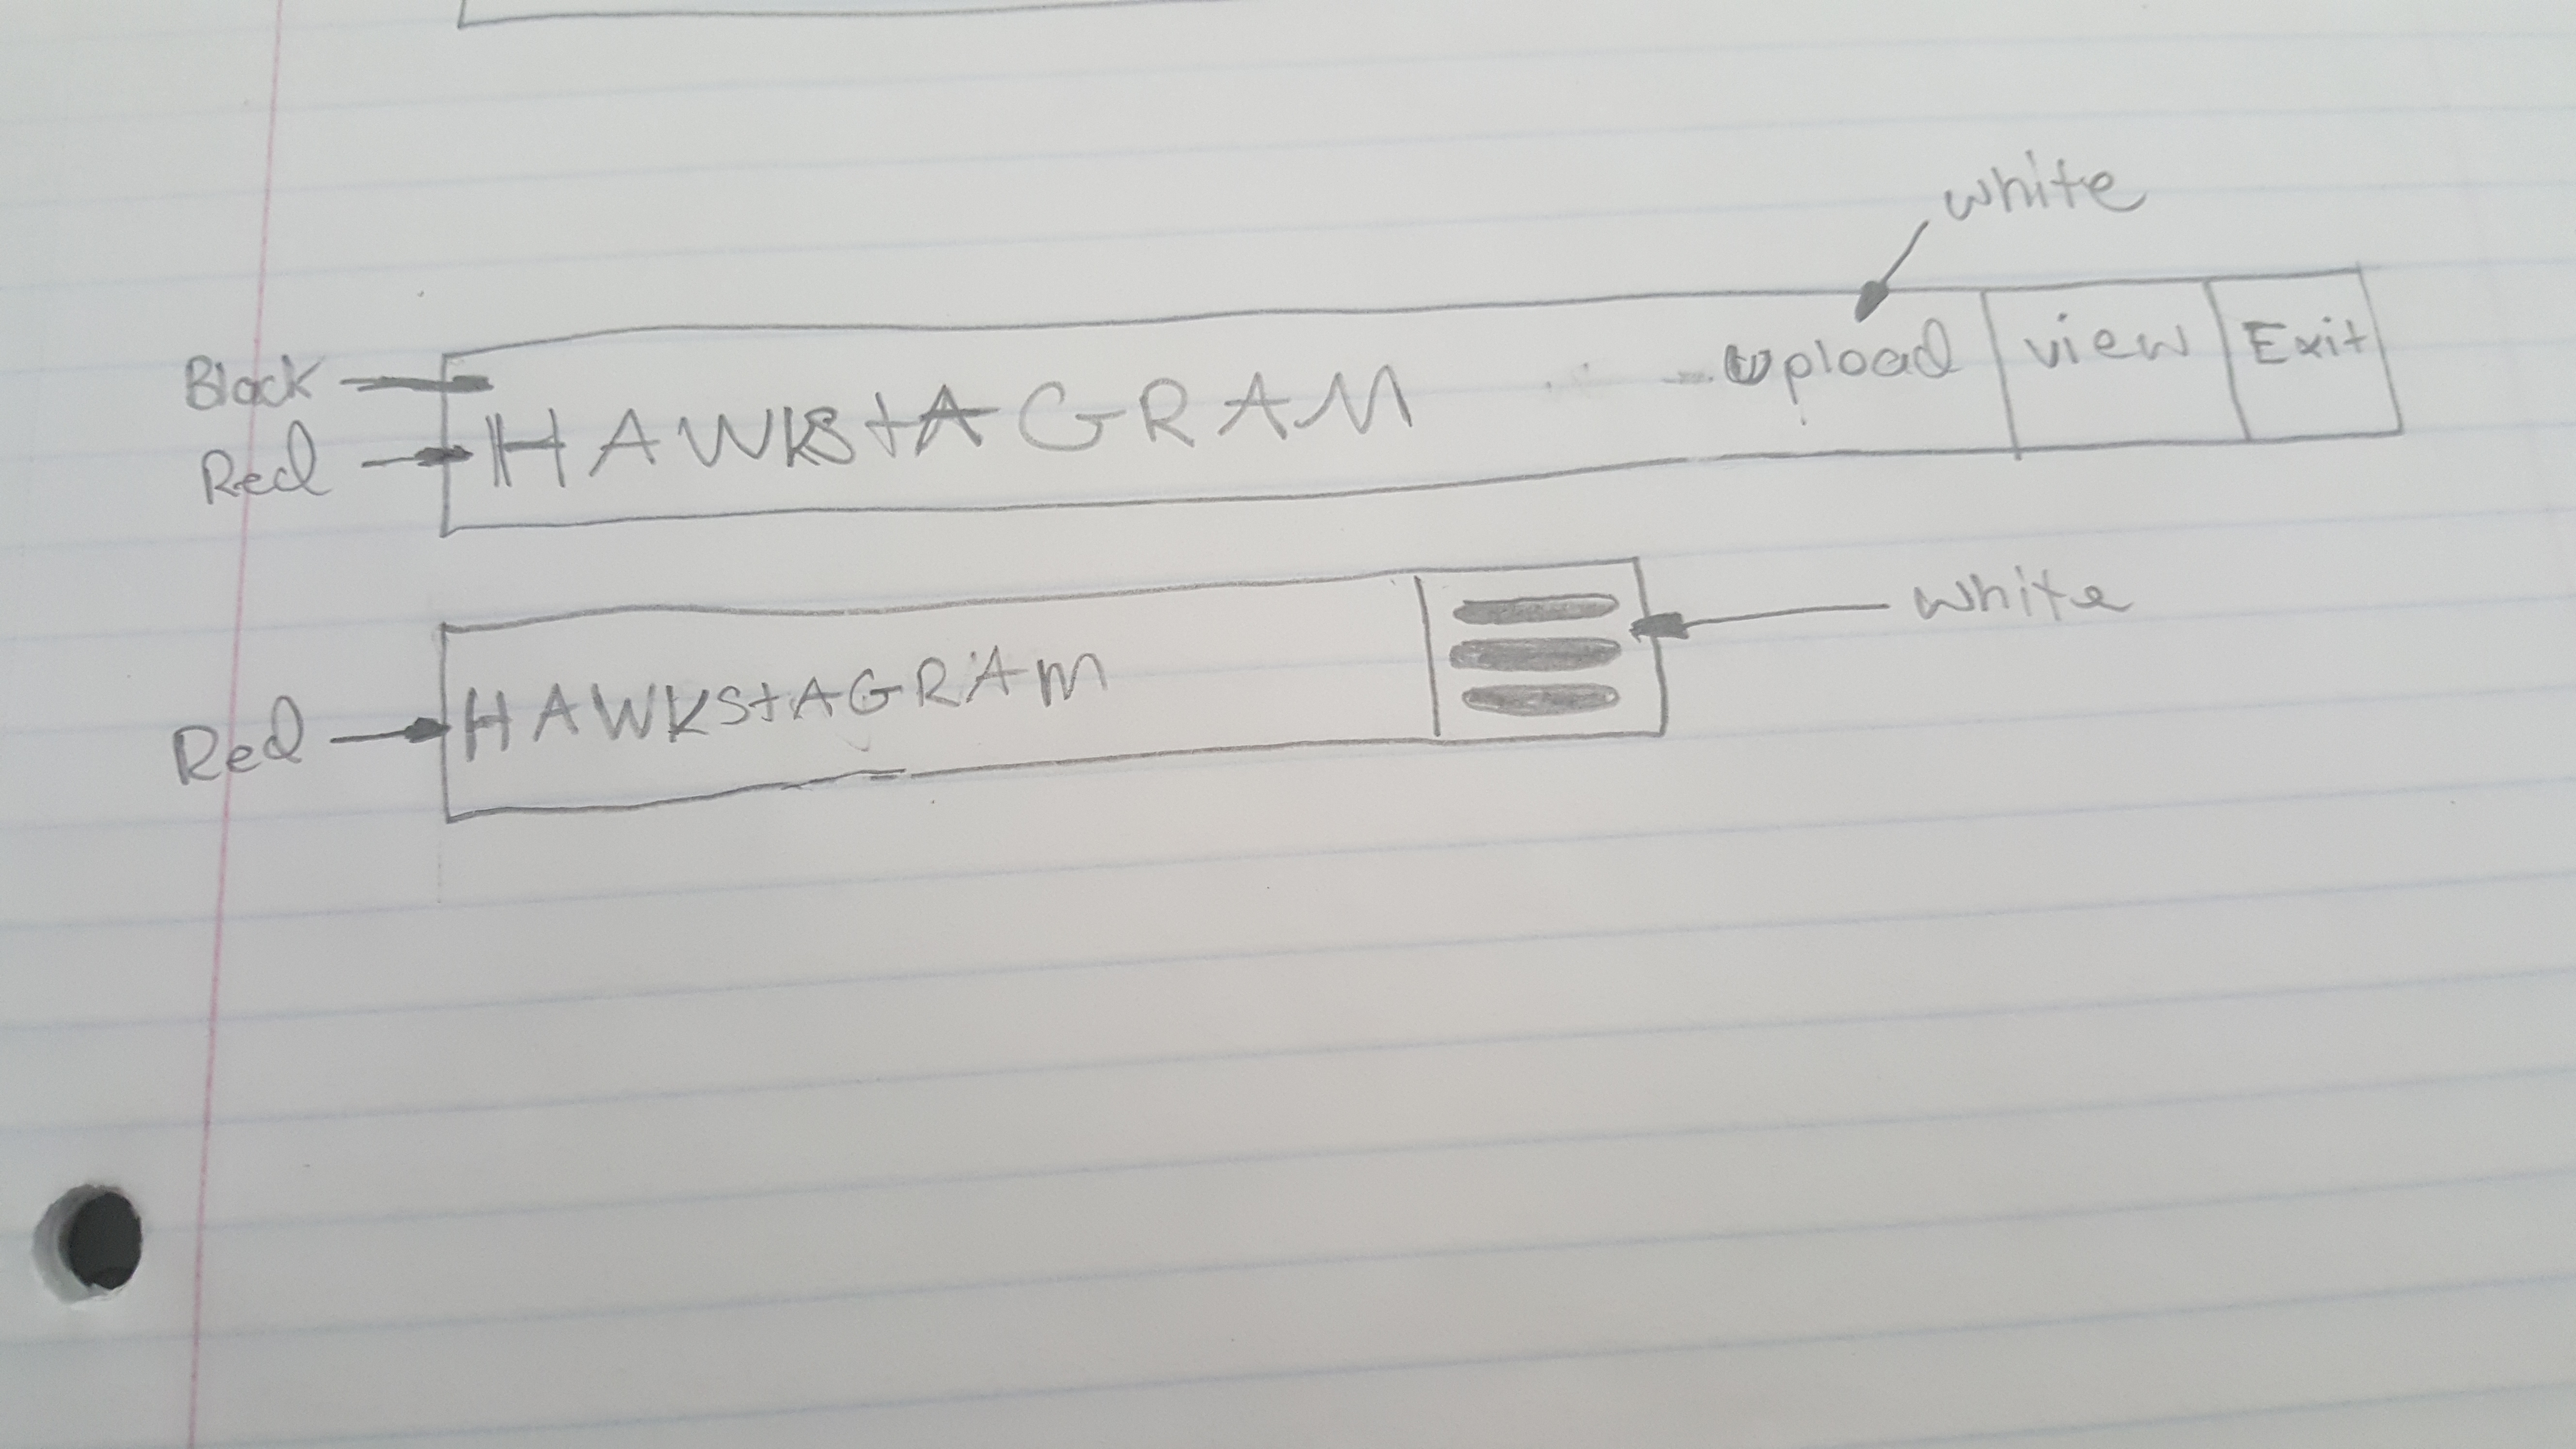 White
Black
Red
HAWKStAGRAM upload view Exit
Red
HAWKStAGRAM
White